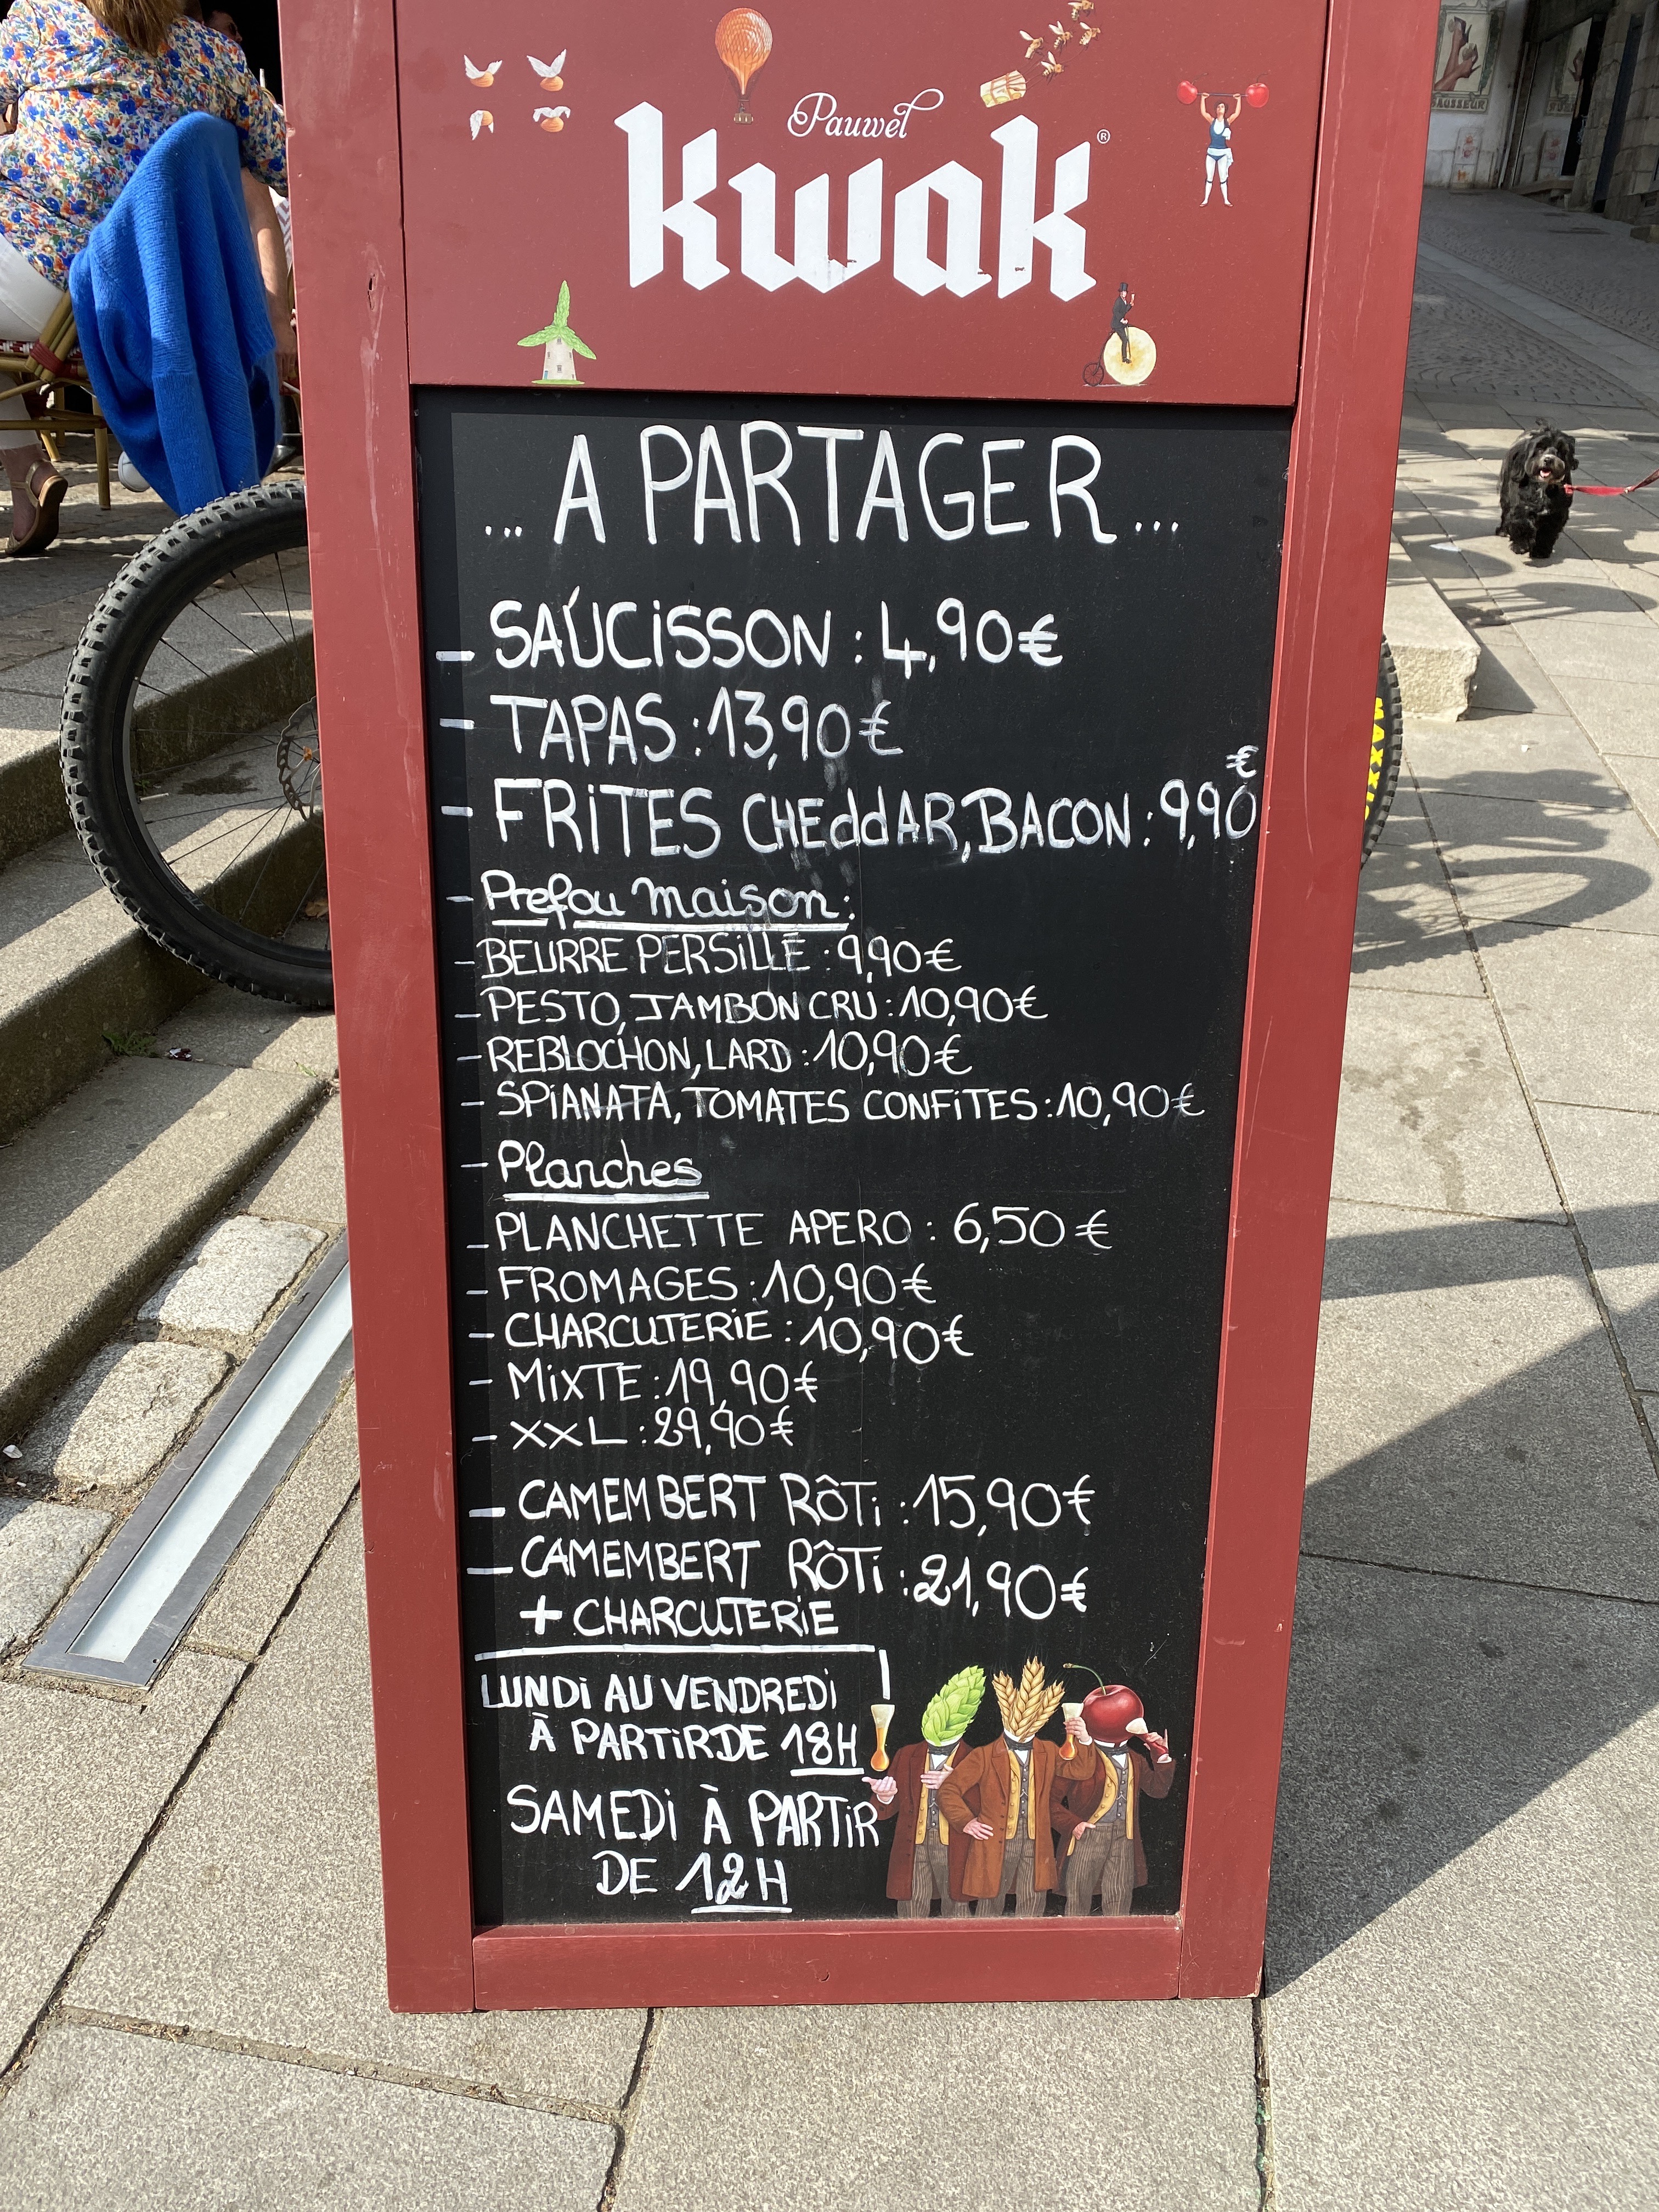 Pauwel
kwak®
... A PARTAGER ...
- SAUCISSON : 4,90€
- TAPAS : 13,90€
- FRITES CHEddAR, BACON : 9,90€
- Prefou maison :
- BEURRE PERSILLÉ : 9,90€
- PESTO, JAMBON CRU : 10,90€
- REBLOCHON, LARD : 10,90€
- SPIANATA, TOMATES CONFITES : 10,90€
- Planches
- PLANCHETTE APERO : 6,50€
- FROMAGES : 10,90€
- CHARCUTERIE : 10,90€
- MIXTE : 19,90€
- XXL : 29,90€
- CAMEMBERT RÔTI : 15,90€
- CAMEMBERT RÔTI : 21,90€
+ CHARCUTERIE
LUNDI AU VENDREDI
À PARTIR DE 18H
SAMEDI À PARTIR
DE 12H
MAXXIS